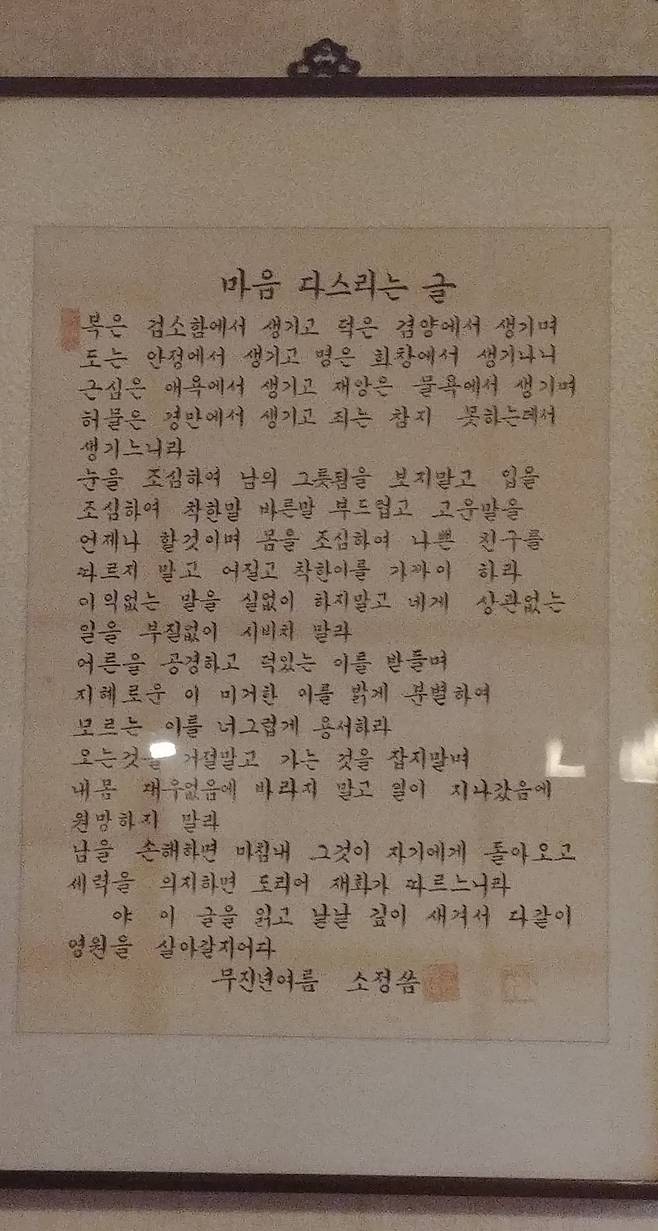 마음 다스리는 글
복은 검소함에서 생기고 덕은 겸양에서 생기며
도는 안정에서 생기고 명은 화창에서 생기나니
근심은 애욕에서 생기고 재앙은 물욕에서 생기며
허물은 경만에서 생기고 죄는 참지 못하는데서
생기느니라
눈을 조심하여 남의 그릇됨을 보지말고 입을
조심하여 착한말 바른말 부드럽고 고운말을
언제나 할것이며 몸을 조심하여 나쁜 친구를
따르지 말고 어질고 착한이를 가까이 하라
이익없는 말을 실없이 하지말고 네게 상관없는
일을 부질없이 시비치 말라
어른을 공경하고 덕있는 이를 받들며
지혜로운 이 미거한 이를 밝게 분별하여
모르는 이를 너그럽게 용서하라
오는것을 거절말고 가는 것을 잡지말며
내몸 대우없음에 바라지 말고 일이 지나갔음에
원망하지 말라
남을 손해하면 마침내 그것이 자기에게 돌아오고
세력을 의지하면 도리어 재화가 따르느니라
야 이 글을 읽고 날날 깊이 새겨서 다같이
영원을 살아갈지어다
무진년여름 소정씀